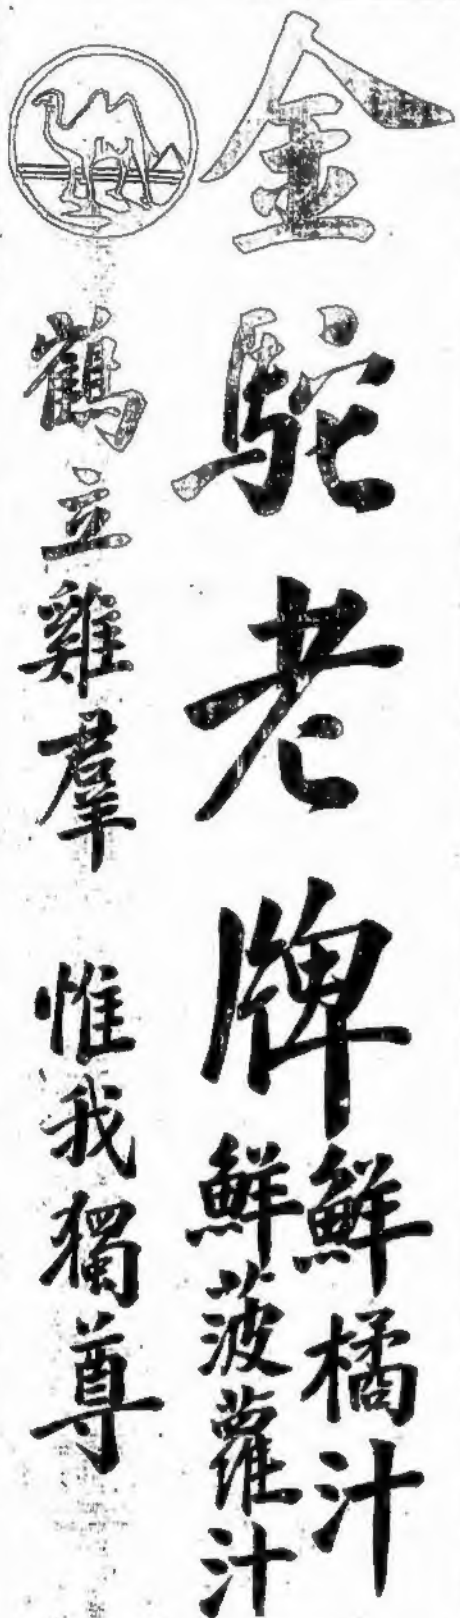 金駝老牌
鮮橘汁
鮮菠蘿汁
鶴立雞羣 惟我獨尊